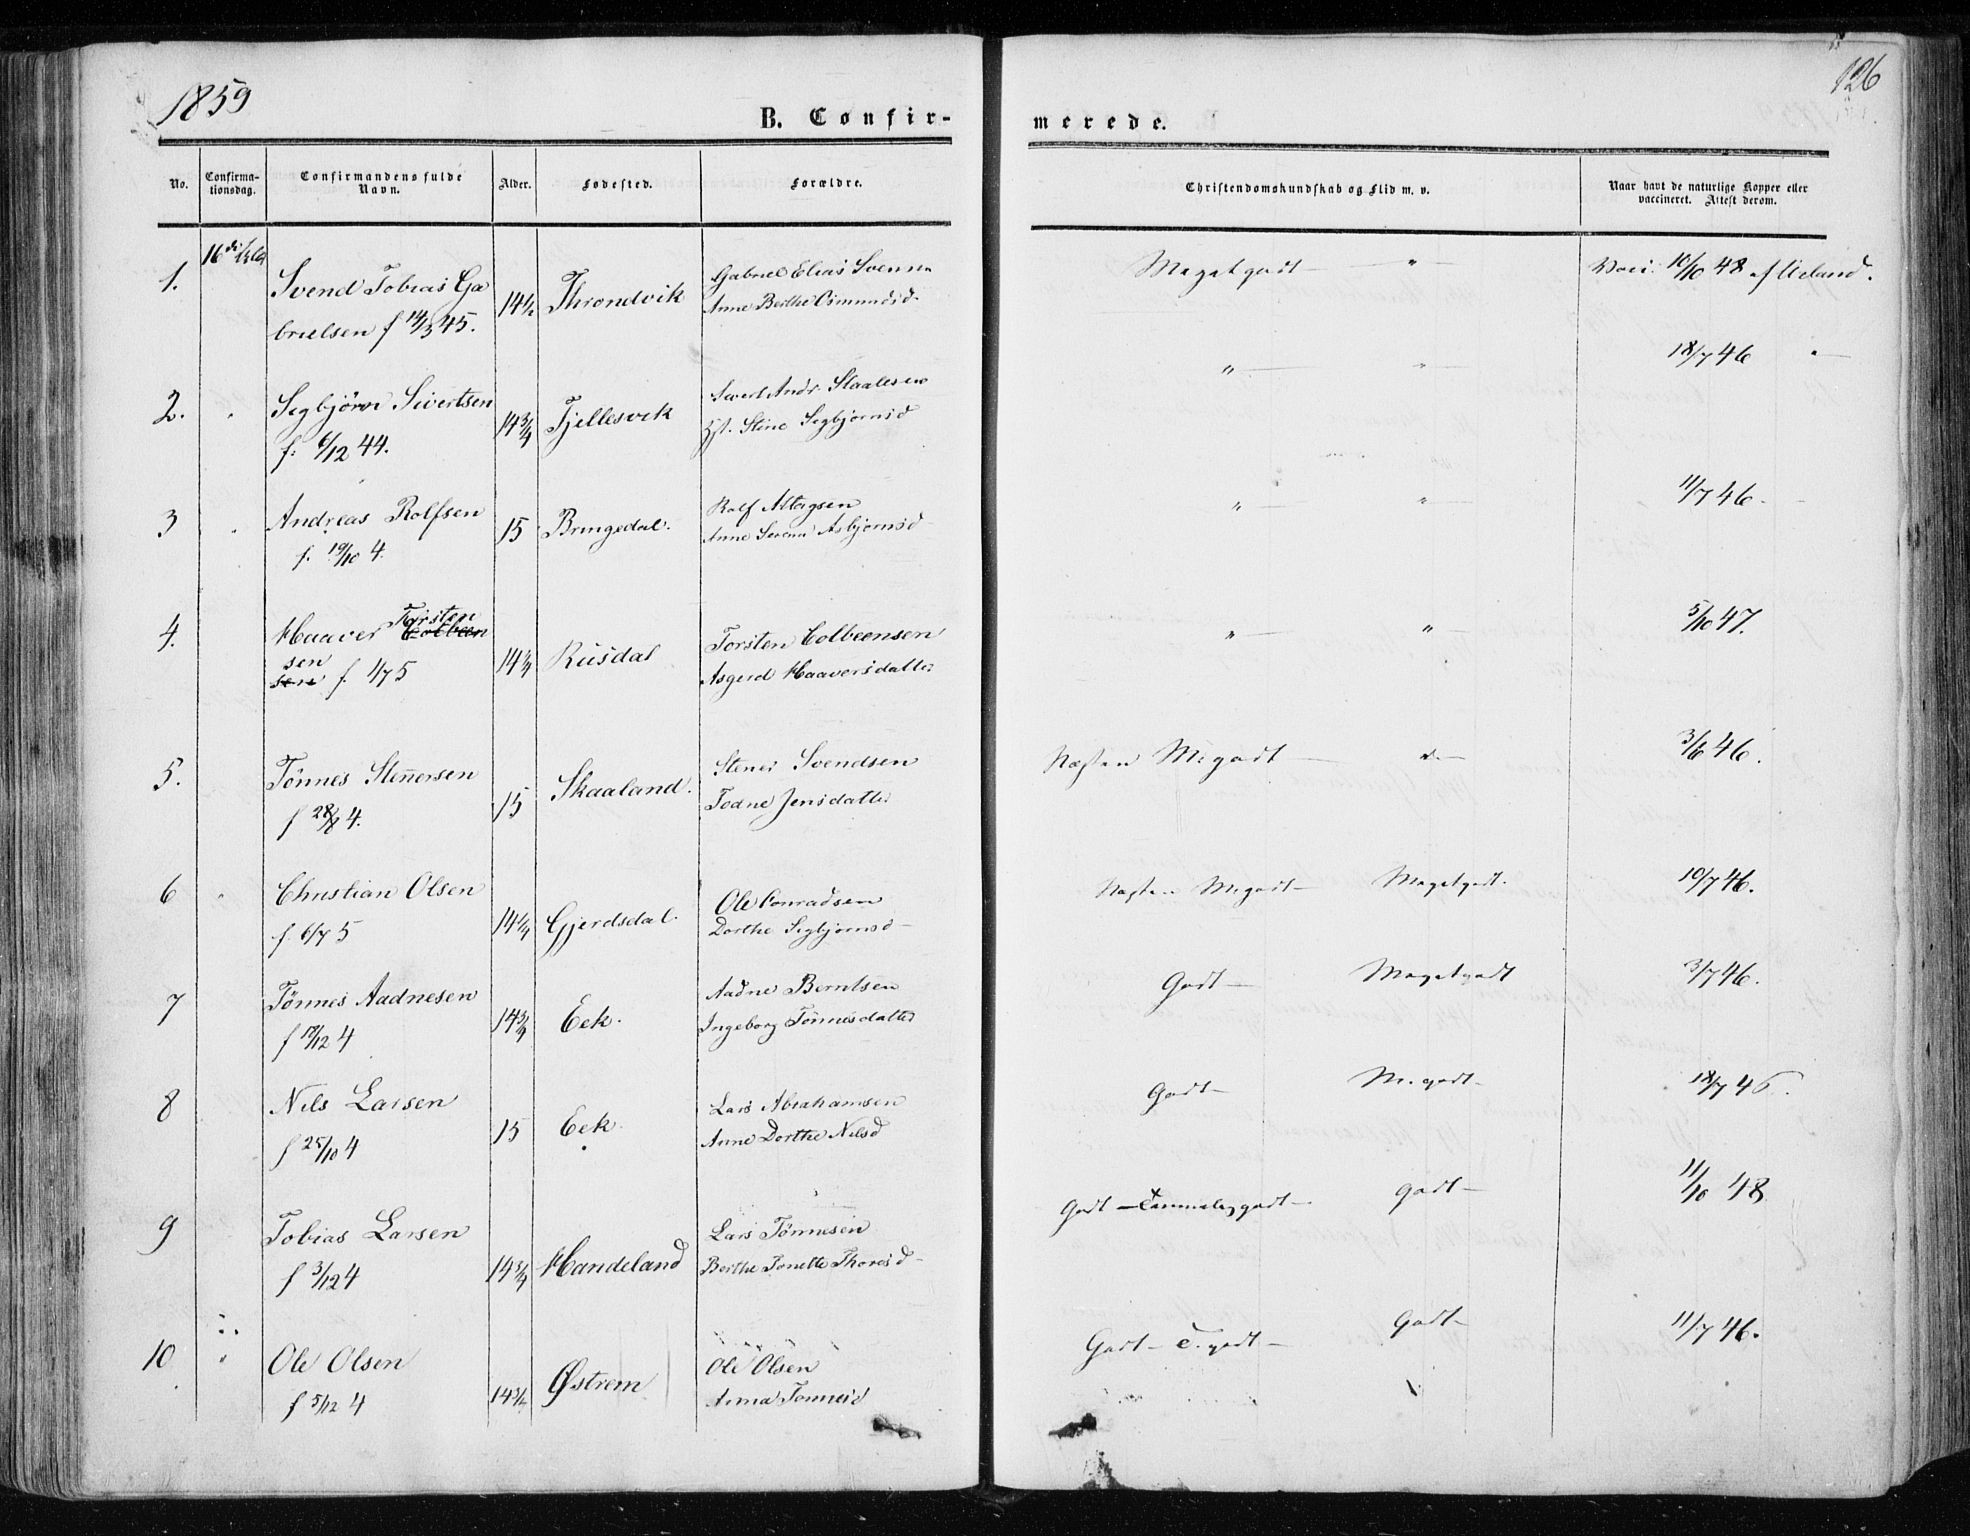 1859
126
B. Confir-
merede.
No.
Confirma-
tionsdag.
Confirmandens fulde
Navn.
Alder.
Fødested.
Forældre.
Christendomskundskab og Flid m. v.
Naar havt de naturlige Kopper eller
vaccineret. Attest derom.
1.
16de Octbr
Svend Tobias Ga
brielsen f 14/3 45.
14½
Throndvik
Gabriel Elias Svenn
Anne Berthe Osmundsd.
Megetgodt — " —
Vacc. 10/10 48 af Ueland.
2. "
Sigbjörn Sivertsen
f. 6/12 44.
14¾
Fjellesvik
Sivert Andr. Staalesen
Stine Sigbjørnsd
" — " —
18/7 46 " —
3 "
Andreas Rolfsen
f. 19/10 4.
15
Bringedal.
Rolf Attagsen
Anne Serena Asbjørnsd
" — " —
11/7 46 -
4.
Haaver Torsten
Colbeen
sen
sen f. 1/7 5
14¼
Rusdal
Torsten Colbeensen
Asgerd Haaversdatter
" — " —
5/10 47.
5.
Tönnes Stenersen
f 28/8 4.
15
Skaaland.
Stener Svendsen
Todne Jensdatter
Næsten M.godt — " —
3/6 46.
6 "
Christian Olsen
f. 6/7 5
14¼
Gjerdsdal.
Ole Conradsen
Dorthe Sigbjørnsd —
Næsten M.godt — Megetgodt.
10/7 46.
7
Tönnes Aadnesen
f 17/12 4
14¾
Eek.
Aadne Berntsen
Ingeborg Tönnesdatter
Godt — Megetgodt
3/7 46.
8
Nils Larsen
f 25/10 4
15
Eek.
Lars Abrahamsen
Anne Dorthe Nilsd
Godt — M.godt —
18/7 46.
9
Tobias Larsen
f 3/12 4
14¾
Handeland
Lars Tönnesen
Berthe Tonette Thoresd —
Godt — Temmeliggodt — godt —
11/10 48.
10 "
Ole Olsen
f 5/12 4
14¾
Østrem
Ole Olsen
Anna Tonnesd
Godt — T. godt — Godt —
11/7 46.